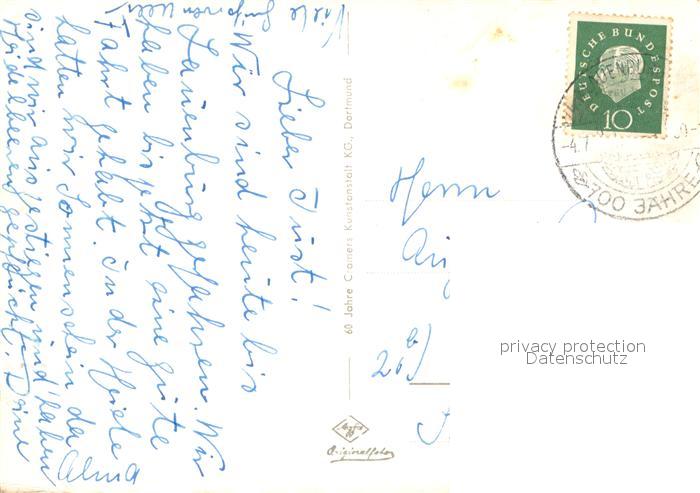 Lieber Just!
Wir sind heute bis
Lauenburg gefahren. Wir
haben bis jetzt eine gute
Fahrt gehabt. In der Heide
hatten wir Sonnenschein da
sind wir ausgestiegen und haben
Heidelbeeren gepflückt. Deine
Alma
Viele
60 Jahre Cramers Kunstanstalt KG., Dortmund
Herrn
DEUTSCHE BUNDESPOST
10
-4.7
700 JAHRE
privacy protection
Datenschutz
Originalfoto